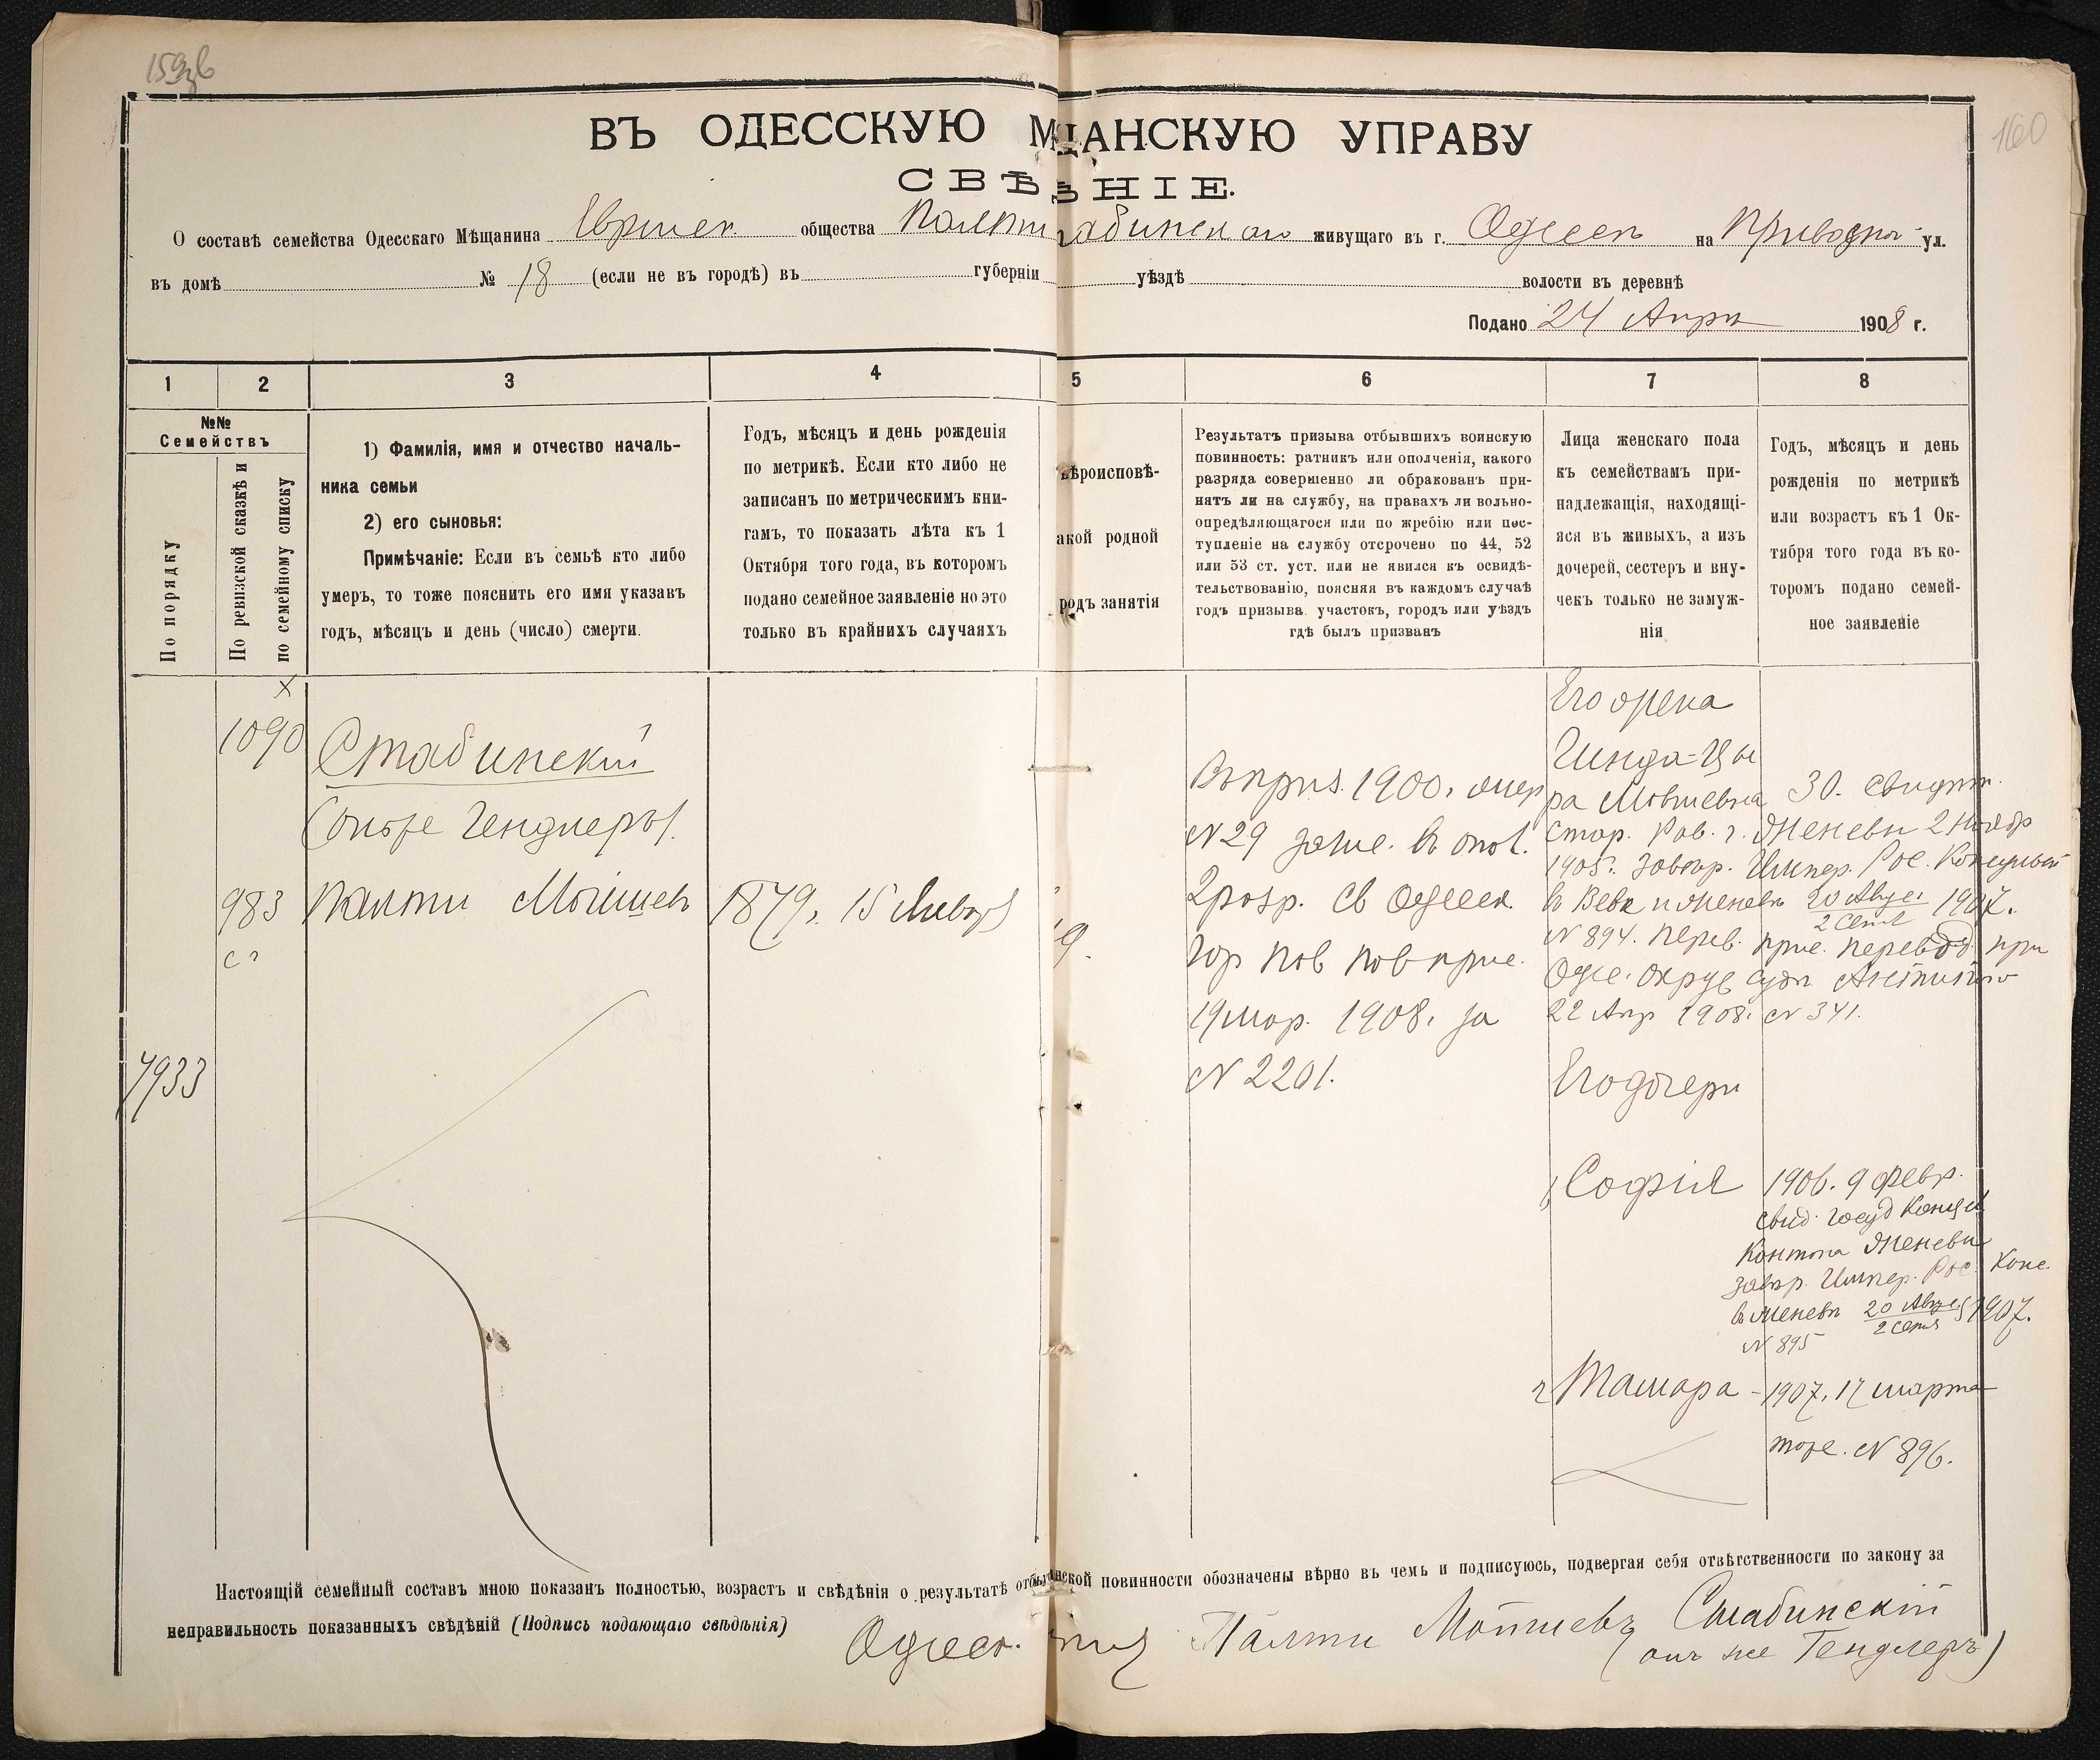 159об
160
ВЪ ОДЕССКУЮ М ЩАНСКУЮ УПРАВУ
СВѢ НІЕ.
О составѣ семейства Одесскаго Мѣщанина Еврейск. общества Палти Стабинскаго живущаго въ г. Одессѣ на Привозной ул.
въ домѣ № 18 (если не въ городѣ) въ губерніи уѣздѣ волости въ деревнѣ
Подано 24 Апрѣля 1908 г.
1 2 3 4 5 6 7 8
№№
Семействъ
По порядку
По ревизской сказкѣ и
по семейному списку
1) Фамилія, имя и отчество началь-
ника семьи
2) его сыновья:
Примѣчаніе: Если въ семьѣ кто либо
умеръ, то тоже пояснить его имя указавъ
годъ, мѣсяцъ и день (число) смерти.
Годъ, мѣсяцъ и день рожденія
по метрикѣ. Если кто либо не
записанъ по метрическимъ кни-
гамъ, то показать лѣта къ 1
Октября того года, въ которомъ
подано семейное заявленіе но это
только въ крайнихъ случаяхъ
вѣроисповѣ-
акой родной
родъ занятія
Результатъ призыва отбывшихъ воинскую
повинность: ратникъ или ополченія, какого
разряда совершенно ли обракованъ при-
нятъ ли на службу, на правахъ ли вольно-
опредѣляющагося или по жребію или пос-
тупленіе на службу отсрочено по 44, 52
или 53 ст. уст. или не явился къ освидѣ-
тельствованію, поясняя въ каждомъ случаѣ
годъ призыва участокъ, городъ или уѣздъ
гдѣ былъ призванъ
Лица женскаго пола
къ семействамъ при-
надлежащія, находящі-
яся въ живыхъ, а изъ
дочерей, сестеръ и вну-
чекъ только не замуж-
нія
Годъ, мѣсяцъ и день
рожденія по метрикѣ
или возрастъ къ 1 Ок-
тября того года въ ко-
торомъ подано семей-
ное заявленіе
х
1090
Стабинскій
(онъ же Гендлеръ).
983
Палти Мойшевъ
1879. 15 Январ
7933
Въ приз. 1900. жер
N 29 зачис. въ опол.
2 разр. Св Одесск.
Гор Пов Пов прис.
19 мар. 1908. за
N 2201.
Его жена
Гинда-Цы
ра Мовшевна 30. Свидѣт.
Стар. Рав. г. Женевы 2 Ноябр
1905. завѣр. Импер. Рос. Консульст
въ Веве и Женевѣ 20 Авгус. 1907.
2 Сент
N 894. перев. прис. перевод при
Одес. округ суда
22 Апр 1908. N 341.
Его дочери
1, Софія 1906. 9 Февр.
Свид.
Кантона Женевы
завѣр. Импер. Рос. Конс.
въ Женевѣ 20 Авгус. 1907.
2 Сент
N 895
2 Тамара - 1907. 17 марта
тоже. N 896.
Настоящій семейный составъ мною показанъ полностью, возрастъ и свѣдѣнія о результатѣ отбы инской повинности обозначены вѣрно въ чемъ и подписуюсь, подвергая себя отвѣтственности по закону за
неправильность показанныхъ свѣдѣній (Подпись подающаго свѣдѣнія) Одесск. Палти Мойшевъ Стабинскій
(онъ же Гендлеръ)